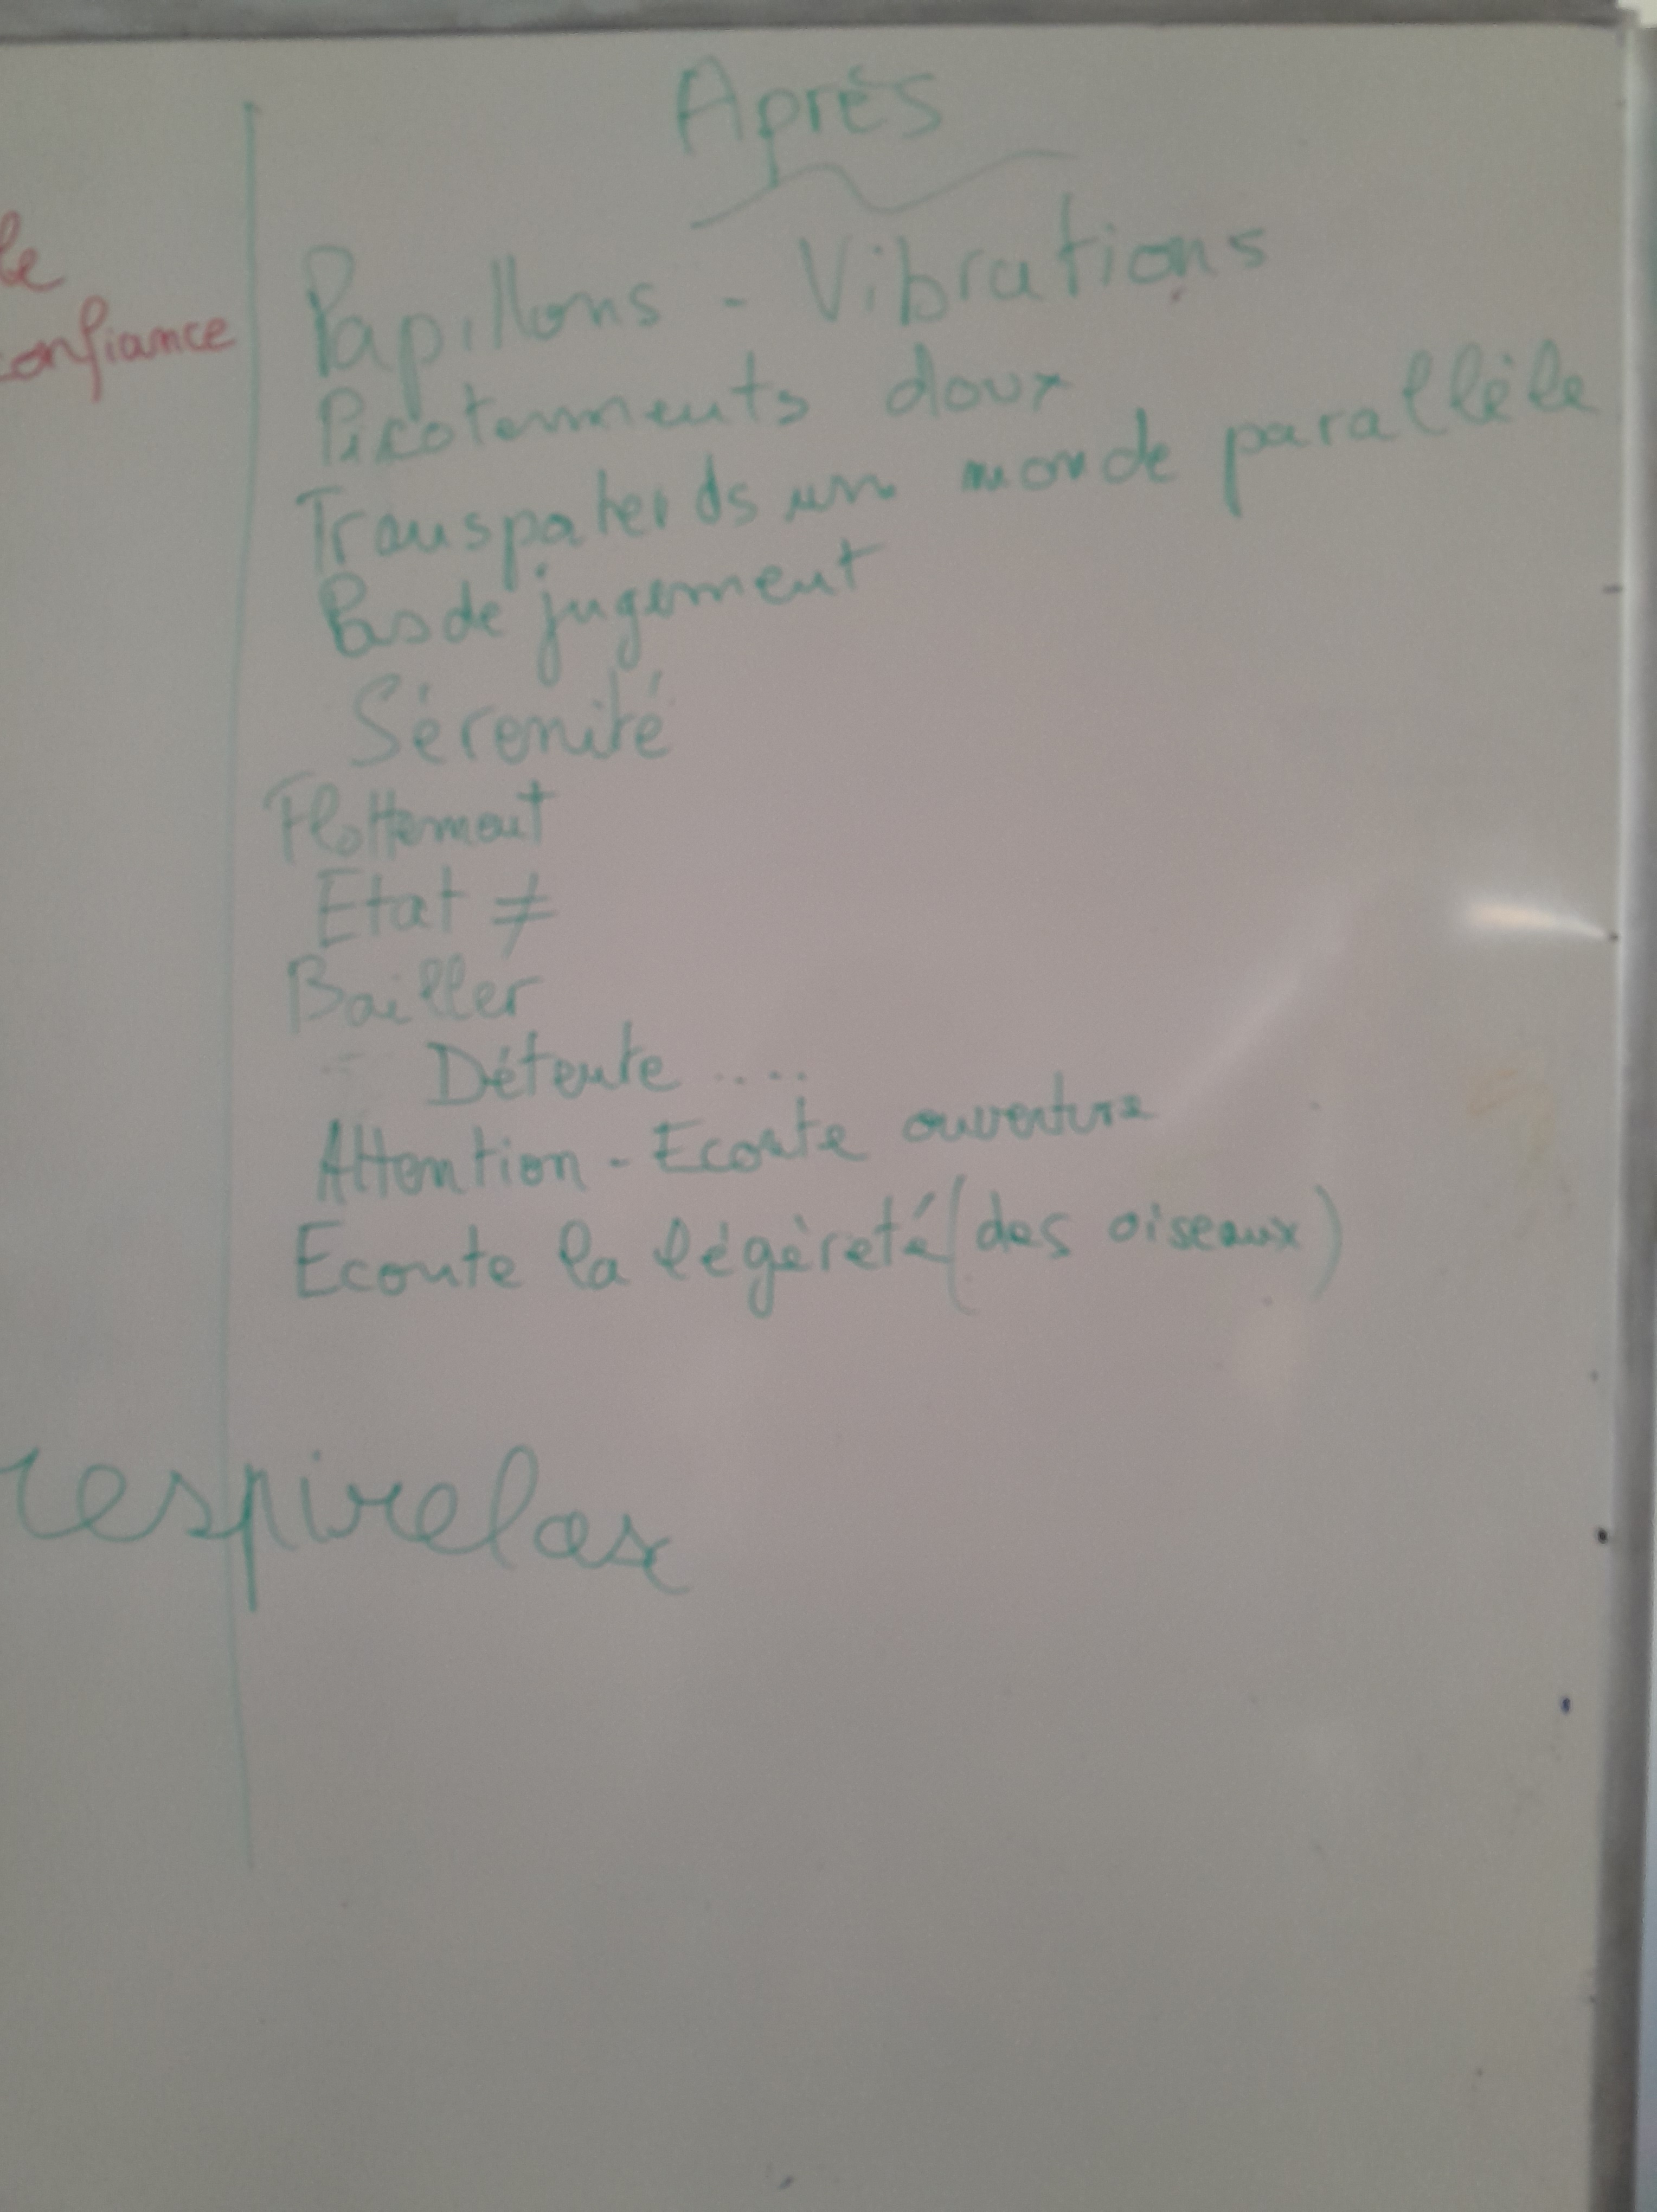 Après
le
confiance
Papillons - Vibrations
Picotements doux
ds un monde parallèle
Pas de jugement
Sérénité
Flottement
Etat ≠
Bailler
Détente ....
Attention - Ecoute ouverture
Ecoute la légèreté (des oiseaux)
respirelax